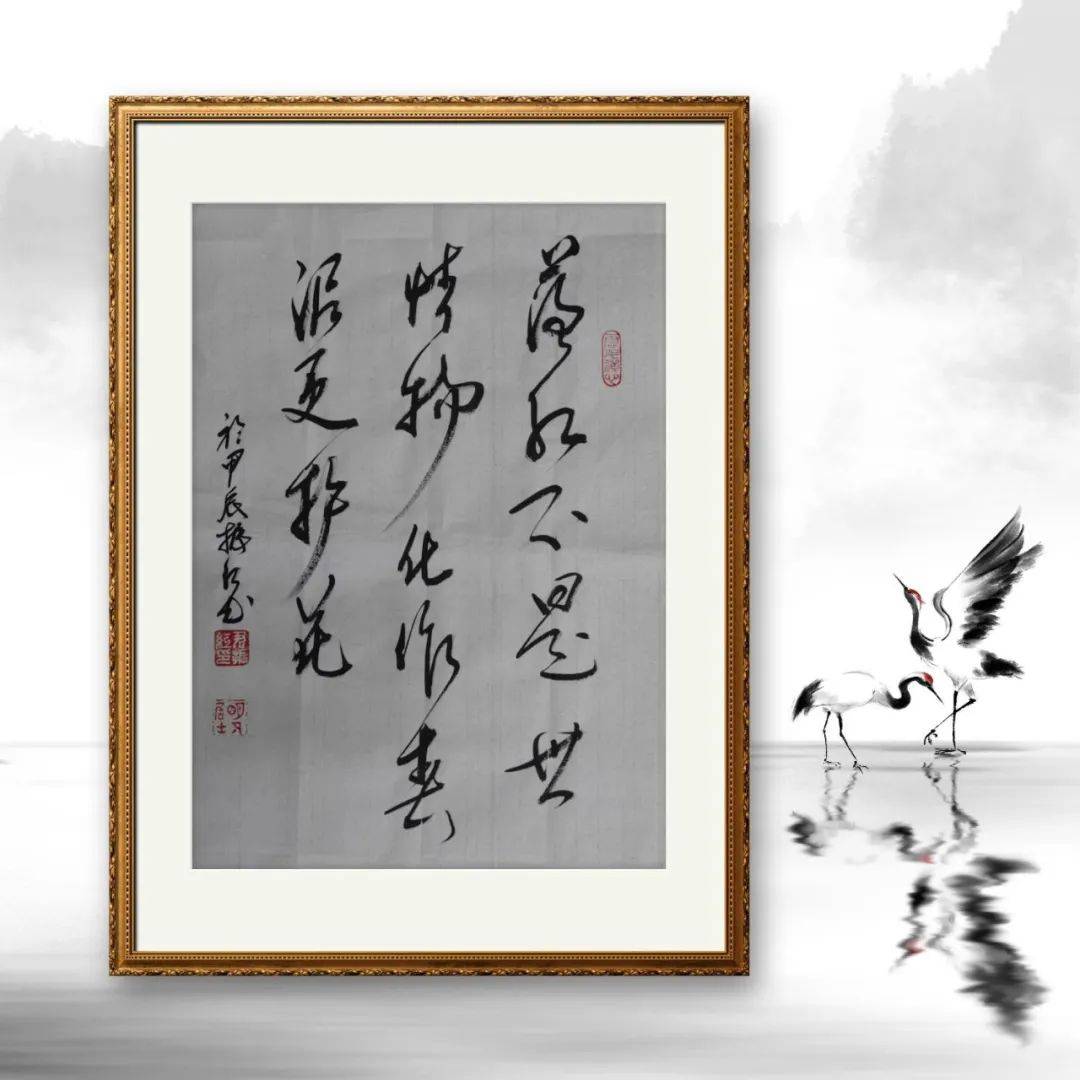 落红不是無
情物化作春
泥更护花
於甲辰振
居士